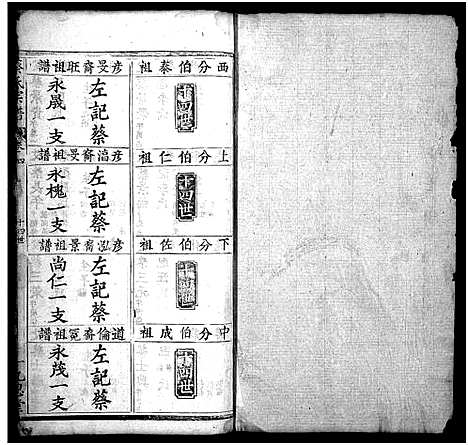 西分伯泰祖
十四世
彦旻斋旺祖譜
左記蔡
永晟一支
上分伯仁祖
十四世
彦滈斋旻祖譜
左記蔡
永槐一支
下分伯佐祖
十四世
彦泓斋景祖譜
左記蔡
尚仁一支
中分伯成祖
十四世
道倫斋冕祖譜
左記蔡
永茂一支
十四世